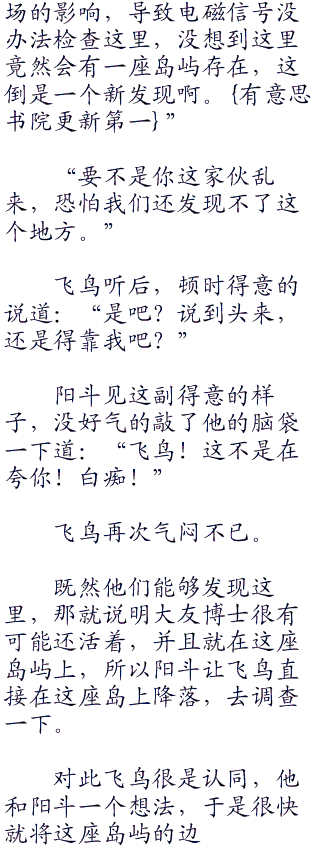 场的影响，导致电磁信号没
办法检查这里，没想到这里
竟然会有一座岛屿存在，这
倒是一个新发现啊。{有意思
书院更新第一}”
“要不是你这家伙乱
来，恐怕我们还发现不了这
个地方。”
飞鸟听后，顿时得意的
说道：“是吧？说到头来，
还是得靠我吧？”
阳斗见这副得意的样
子，没好气的敲了他的脑袋
一下道：“飞鸟！这不是在
夸你！白痴！”
飞鸟再次气闷不已。
既然他们能够发现这
里，那就说明大友博士很有
可能还活着，并且就在这座
岛屿上，所以阳斗让飞鸟直
接在这座岛上降落，去调查
一下。
对此飞鸟很是认同，他
和阳斗一个想法，于是很快
就将这座岛屿的边